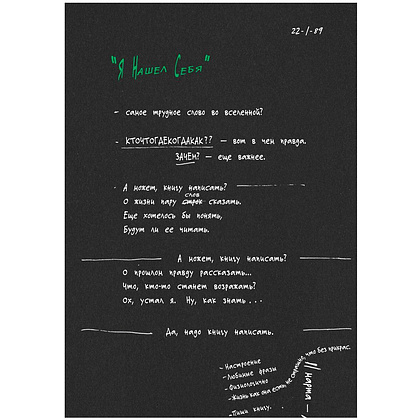 22-1-89
"Я Нашел Себя"
- самое трудное слово во вселенной?
- КТОЧТОГДЕКОГДАКАК?? - вот в чем правда.
ЗАЧЕМ? - еще важнее.
- А может, книгу написать?
слов
О жизни пару строк сказать.
Еще хотелось бы понять,
Будут ли ее читать.
А может, книгу написать?
О прошлом правду рассказать...
Что, кто-то станет возражать?
Ох, устал я. Ну, как знать...
Да, надо книгу написать.
- Настроение
- Любимые фразы
- Физиологично
- Жизнь как она есть, не страшно, что без прикрас.
- Пиши книгу.
/// марта